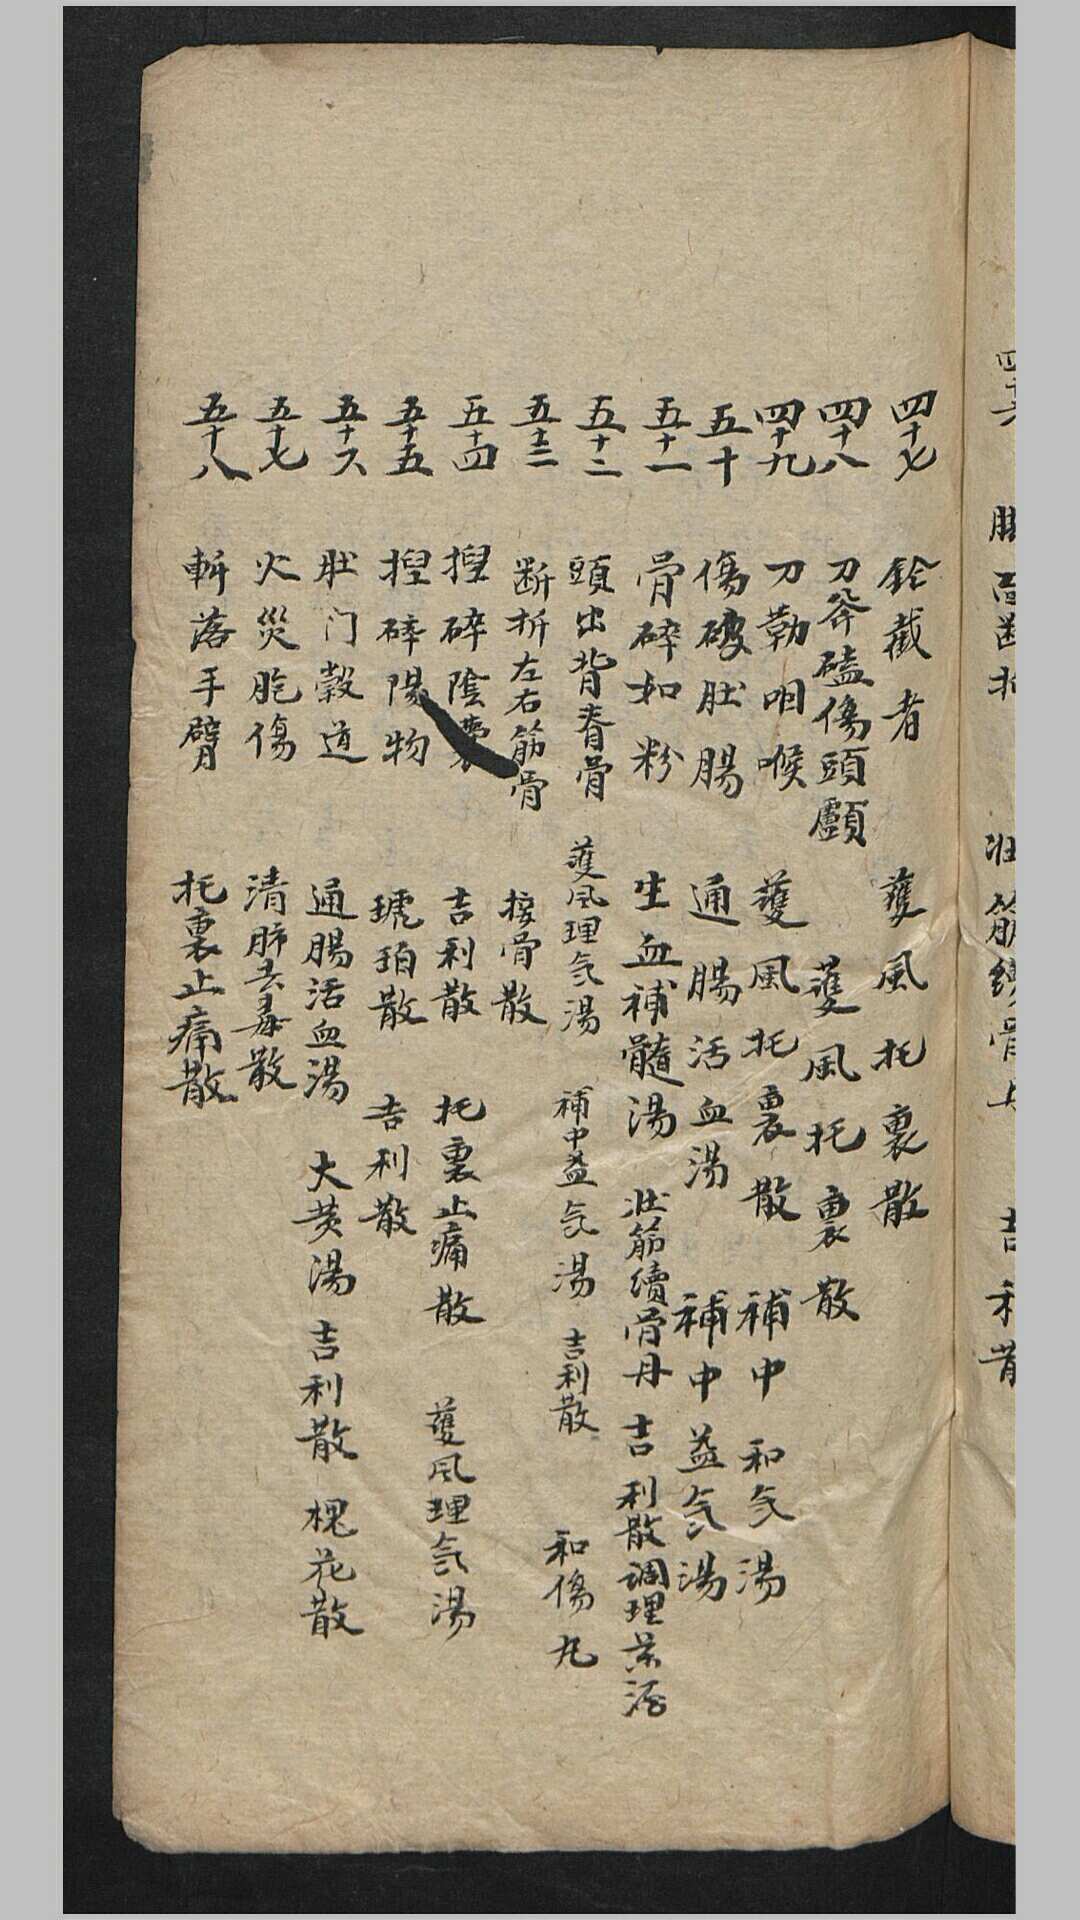 四十七 鈴截者 護風托裏散
四十八 刀斧磕傷頭顱 護風托裏散
四十九 刀勒咽喉 護風托裏散 補中和气湯
五十 傷破肚腸 通腸活血湯 補中益气湯
五十一 骨碎如粉 生血補髓湯 壯筋續骨丹 吉利散 調理藥酒
五十二 頭出背脊骨 護風理气湯 補中益气湯 吉利散 和傷丸
五十三 断折左右筋骨 接骨散
五十四 揑碎陰囊 吉利散 托裏止痛散 護風理气湯
五十五 揑碎陽物 琥珀散 吉利散
五十六 肚门穀道 通腸活血湯 大黄湯 吉利散 槐花散
五十七 火災胞傷 清肺去毒散
五十八 斬落手臂 托裏止痛散